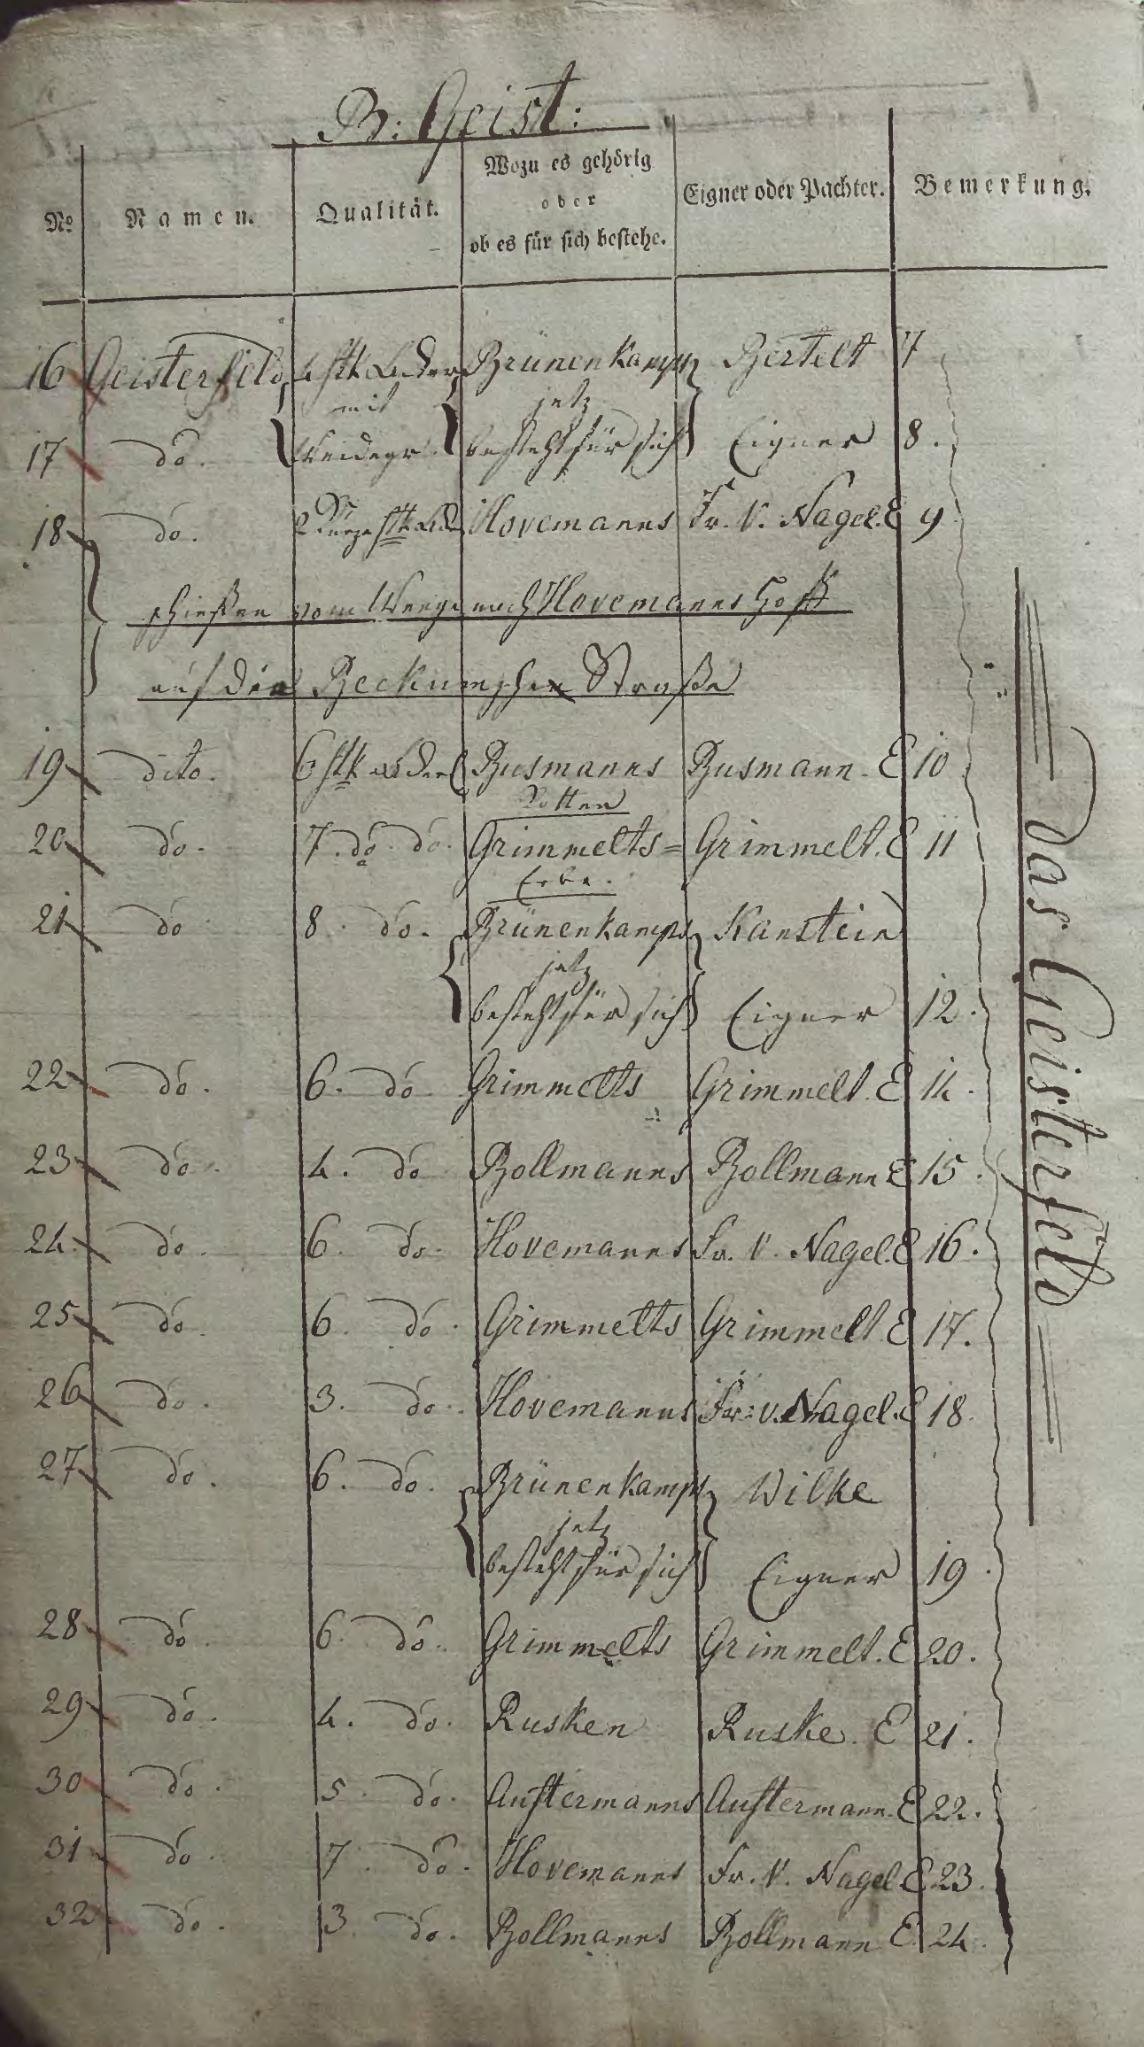 B: Geist:
No Namen. Qualität. Wozu es gehörig oder ob es für sich bestehe. Eigner oder Pachter. Bemerkung.
16 Geisterfeld 4 stk Brünenkamps Bertelt 7
mit jetz
17 do. Weidegr. besteht für sich Eigner 8.
18 do. 2 Hovemanns Fr. V. Nagel. E 9
schießen vom Weege nach Hovemanns Hoff
auf die Beckumsche Straße
19 dito. 6 stk Busmanns Busmann. E 10
Kotten
20 do. 7. do do. Grimmelts= Grimmelt. E 11
Erbe.
21 do 8. do. Brünenkamps Kanstein
jetz
besteht für sich Eigner 12.
22 do. 6. do Grimmelts Grimmelt. E 14.
23 do. 4. do Bollmanns Bollmann E 15.
24. do. 6. do. Hovemanns Fr. V. Nagel. E 16.
25 do. 6. do. Grimmelts Grimmelt. E 17.
26 do. 3. do. Hovemanns Fr: v. Nagel. E 18.
27 do. 6. do. Brünenkamps Wilke
jetz
besteht für sich Eigner 19.
28 do. 6. do. Grimmelts Grimmelt. E 20.
29 do. 4. do. Rusken Ruske. E 21.
30 do. 5. do. Austermanns Austermann. E 22.
31 do. 7. do. Hovemanns Fr. V. Nagel E 23.
32 do. 3 do. Bollmanns Bollmann E 24.
Das Geisterfeld